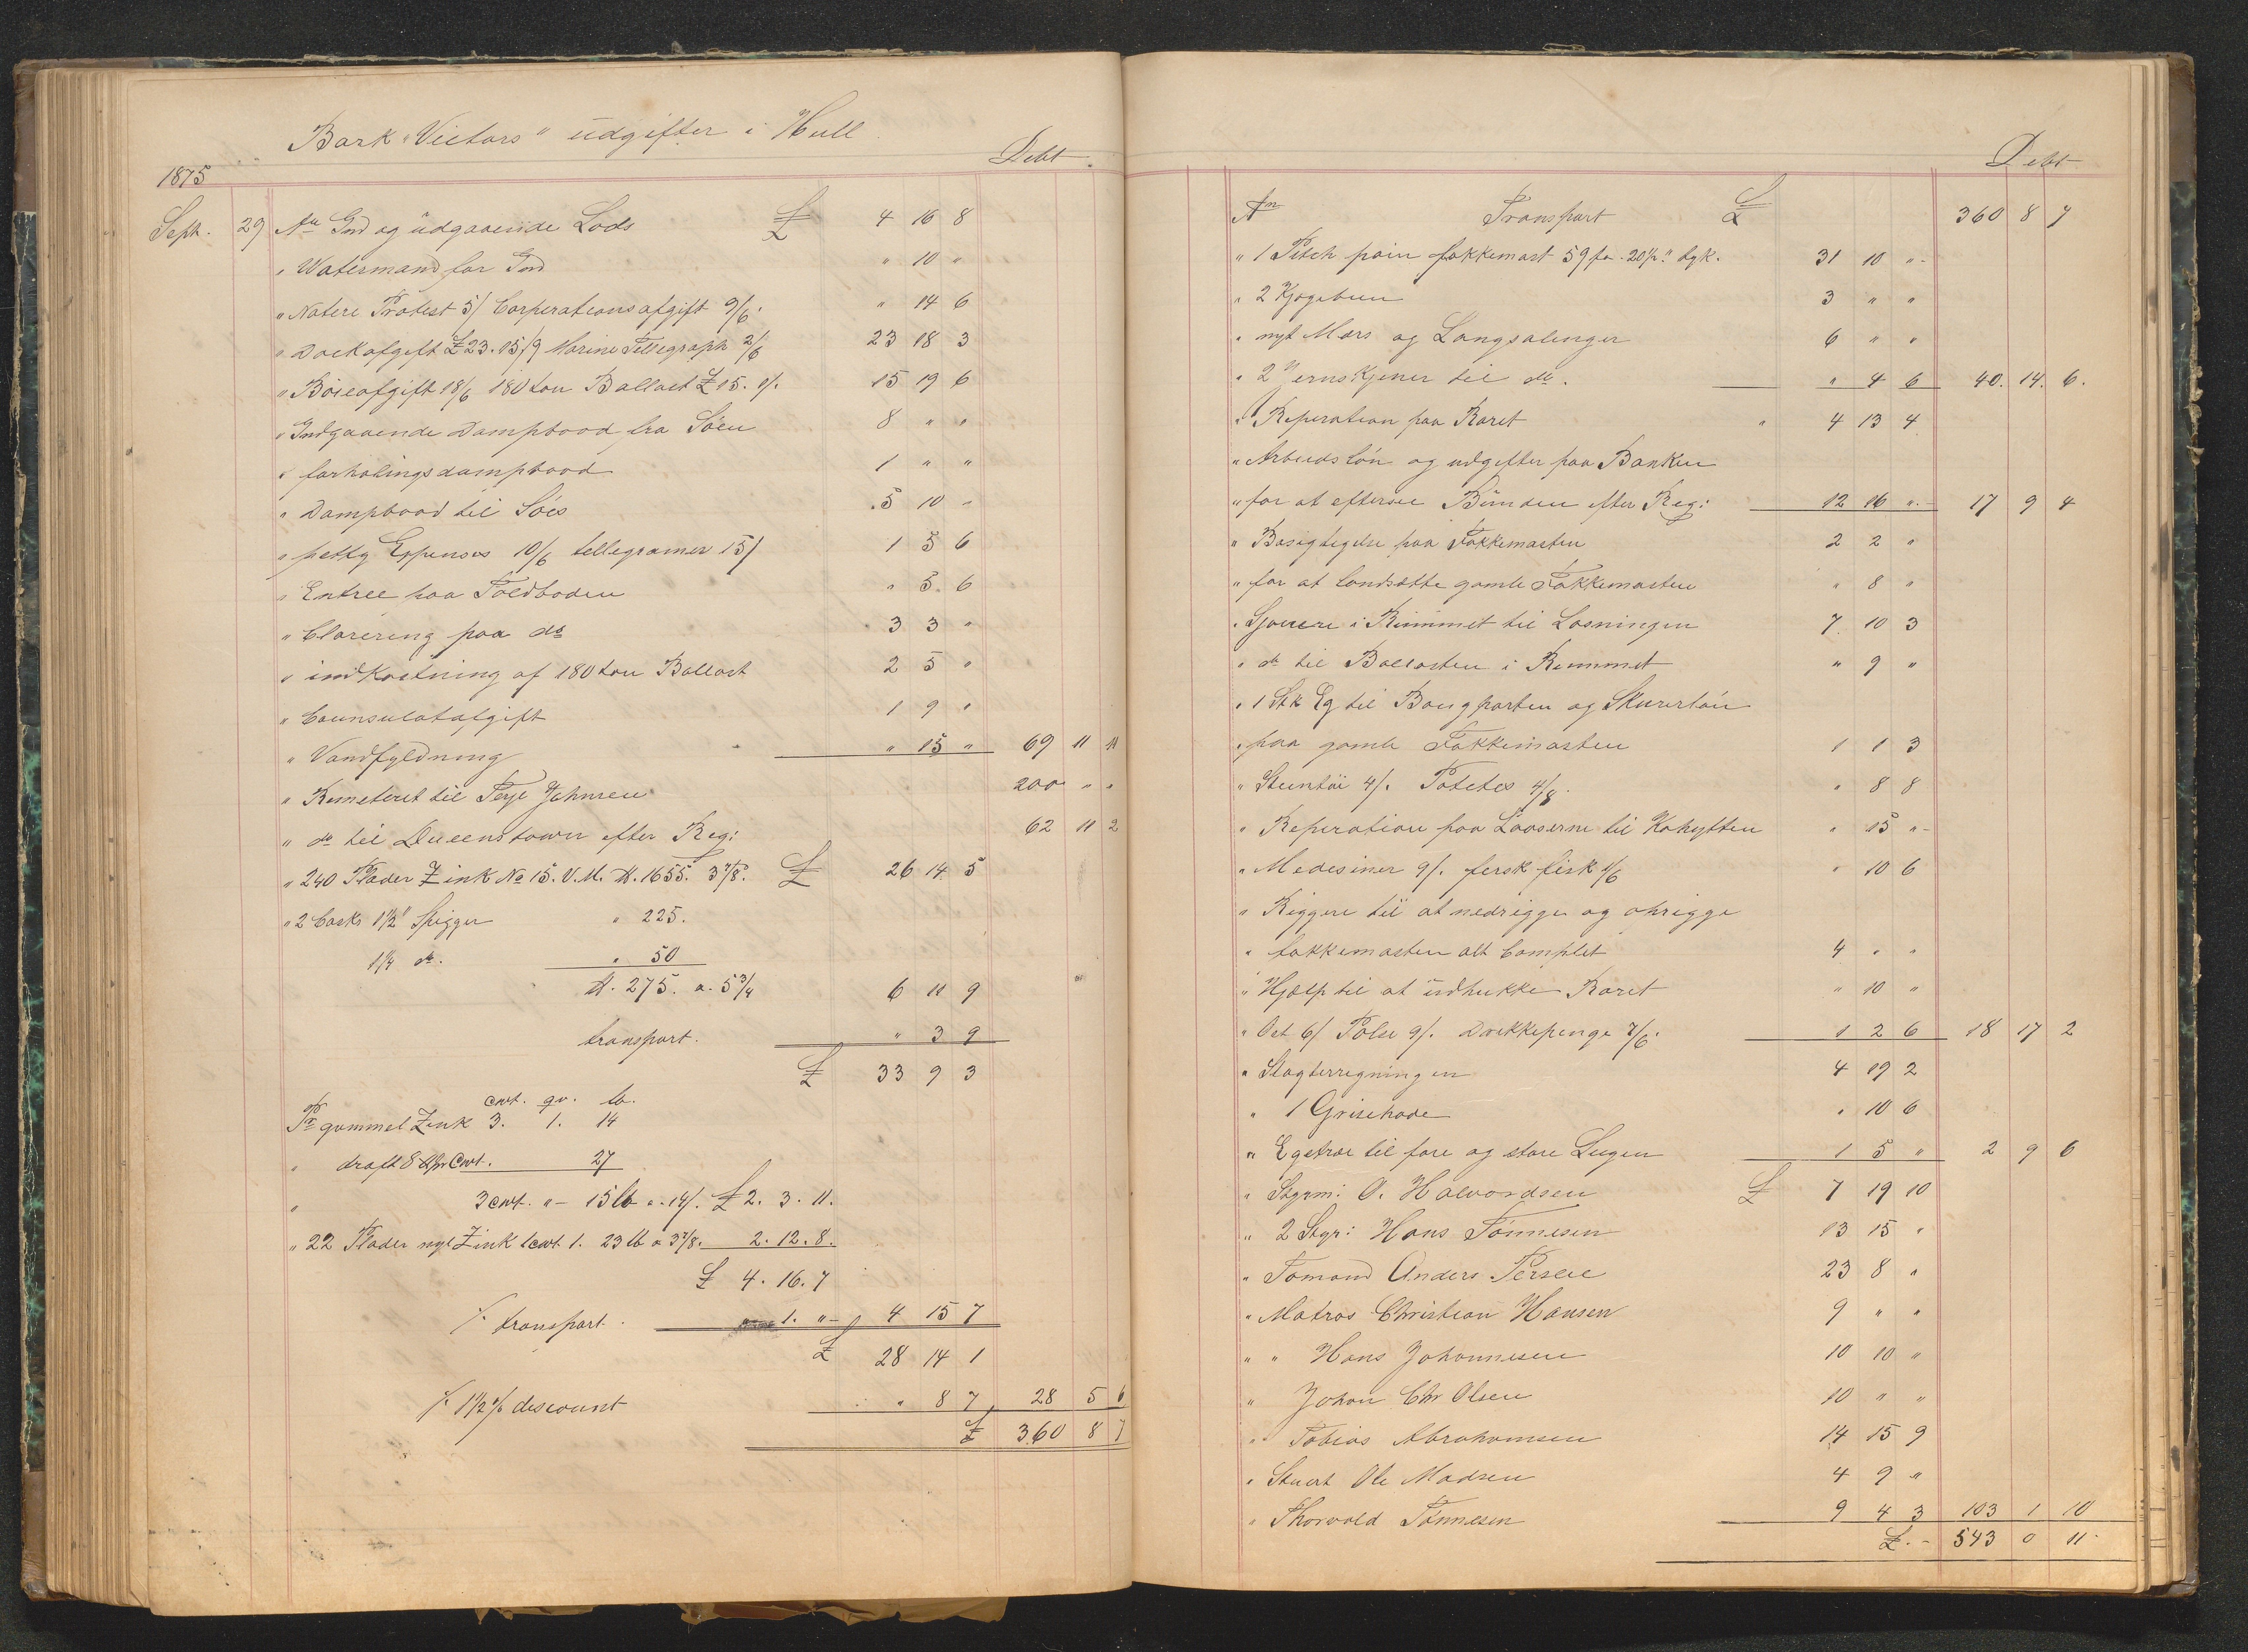 Bark "Victors" udgifter i Hull
Debt.
1875
Sept. 29 An Ind og udgaaende Lods £ 4 16 8
" Watermand for Ind " 10 "
" Notere Protest 5/ Corperationsafgift 9/6. " 14 6
" Dockafgift £23.15/9 Marine Tellegraph 2/6 23 18 3
" Böieafgift 18/6 180 ton Ballast £15. 1/. 15 19 6
" Indgaaende Dampbaad fra Söen 8 " "
" forhalingsdampbaad 1 " "
" Dampbaad til Söes 5 10 "
" petty Expenses 10/6 tellegramer 15/ 1 5 6
" Entree paa Toldboden " 5. 6
" Clarering paa do 3 3 "
" indkastning af 180 ton Ballast 2 5 "
" Counsulatafgift 1 9 "
" Vandfyldning " 15 " 69 11 11
" Remeteret til Terje Johnsen 200 " "
" do til Queenstown efter Reg: 62 11 2
" 240 Plader Zink No 15. V.M. tt. 1655. 3 7/8. £ 26 14 5
" 2 Casks 1 1/2" Spigger " 225.
1 1/4 do. " 50
tt. 275. a. 5 3/4 6 11 9
transport. " 3 9
£ 33 9 3
cwt. qr. lb.
Pr gammel Zink 3. 1. 14
" draft 8 tt pr Cwt. 27
" 3 cwt. " - 15 lb a. 14/. £ 2. 3. 11.
" 22 Plader nyt Zink 1 cwt. 1. 23 lb a 3 7/8. 2. 12. 8.
£ 4. 16. 7
/. transport. 1. " - 4 15 7
£ 28 14 1
/. 1 1/2 % discount " 8 7 28 5 6
£ 360 8 7
Debt
An Transport £ 360 8 7
" 1 Pitch pain fokkemast 59 fo. 20 1/2" dyk. 31 10 "-
" 2 Kjøgebuen 3 " "
" nyt Mærs og Langsalinger 6 " "
" 2 Jernskjener til do. " 4 6 40. 14. 6.
" Reperation paa Roret " 4 13 4
" Arbeidslön og udgifter paa Banken
" for at eftersee Bunden efter Reg: 12 16 ". 17 9 4
" Besigtigelse paa Fokkemasten 2 2 "
" for at landsætte gamle Fokkemasten " 8 "
" Sjouere i Rummet til Losningen 7 10 3
" do til Ballasten i Rummet " 9 "
" 1 Stk Eg til Bougporten og Skurerlön
" paa gamle Fokkemasten 1 1 3
" Steentöi 4/. Potetes 4/8. " 8 8
" Reperation paa Laaserne til Kahytten " 15 "-
" Medesiner 9/. fersk fisk 1/6 " 10 6
" Riggere til at nedrigge og oprigge
" fokkemasten alt Complet 4 " "
" Hjælp til at udhukke Roret " 10 "
" Ost 6/ Pölse 9/. Drekkepenge 7/6. 1 2 6 18 17 2
" Slagterregningen 4 19 2
" 1 Grisehode " 10 6
" Egetræ til fore og store Lugen 1 5 " 2 9 6
" Styrm: O. Halvordsen £ 7 19 10
" 2 Styr: Hans Tönnesen 13 15 "
" Tömand Anders Persen 23 8 "
" Matros Christian Hansen 9 " "
" " Hans Johannesen 10 10 "
" Johan Chr Olsen 10 " "
" Tobias Abrahamsen 14 15 9
" Stuert Ole Madsen 4 9 "
" Thorvald Tönnesen 9 4 3 103 1 10
£.- 543 0 11